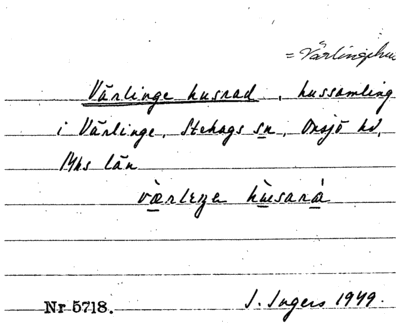 = Värlingehus
Värlinge husrad, hussamling
i Värlinge, Stehags sn, Onsjö hd,
Mhs län
værleŋe hʉsarà
Nr 5718. I. Ingers 1949.